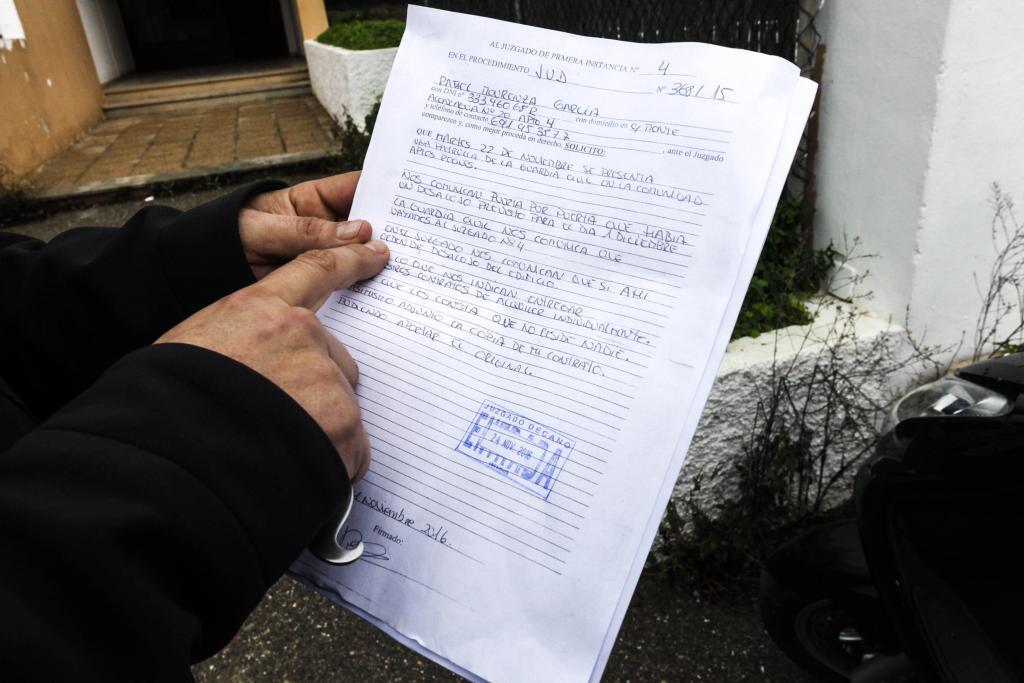 AL JUZGADO DE PRIMERA INSTANCIA Nº 4
EN EL PROCEDIMIENTO JUD Nº 368/15
GARCIA
con DNI nº con domicilio en C/ MONTE
Nº 20 APTO 4
y teléfono de contacto , ante el Juzgado
comparezco y, como mejor proceda en derecho, SOLICITO:
QUE MARTES 22 DE NOVIEMBRE SE PRESENTA
UNA PATRULLA DE LA GUARDIA CIVIL EN LA COMUNIDAD
APTOS
NOS COMUNICAN PUERTA POR PUERTA QUE HABIA
UN DESALOJO PREVISTO PARA EL DIA 1 DICIEMBRE
LA GUARDIA CIVIL NOS COMUNICA QUE
VAYAMOS AL JUZGADO Nº 4
EN EL JUZGADO NOS COMUNICAN QUE SI AHI
ORDEN DE DESALOJO DEL EDIFICIO
LO QUE NOS INDICAN ENTREGAR
CONTRATOS DE ALQUILER INDIVIDUALMENTE.
QUE LES CONSTA QUE NO RESIDE NADIE.
ASIMISMO ADJUNTO LA COPIA DE MI CONTRATO.
PUDIENDO APORTAR EL ORIGINAL.
JUZGADO DECANO
24 NOV. 2016
ENTRADA
Noviembre 2016.
Firmado: